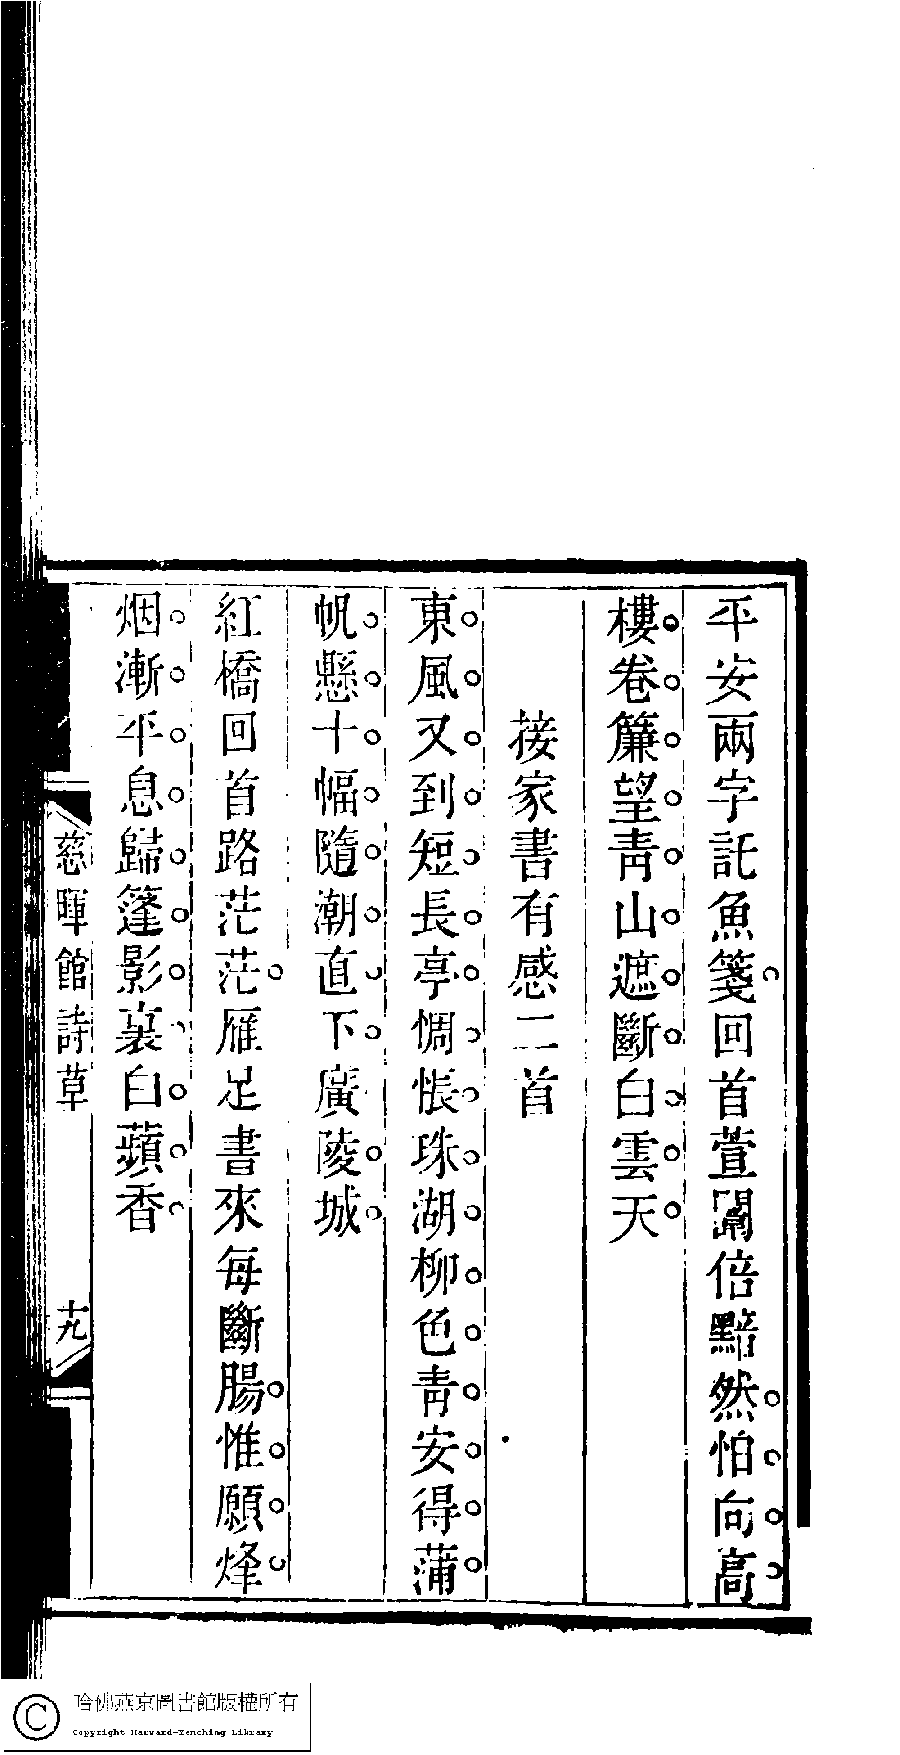 平安兩字託魚箋回首萱闈倍黯然怕向高
樓卷簾望青山遮斷白雲天
接家書有感二首
東風又到短長亭惆悵珠湖柳色青安得蒲
帆懸十幅隨潮直下廣陵城
紅橋回首路茫茫雁足書來每斷腸惟願烽
烟漸平息歸篷影裏白蘋香
慈暉館詩草
十九
哈佛燕京圖書館版權所有
Copyright Harvard-Yenching Library